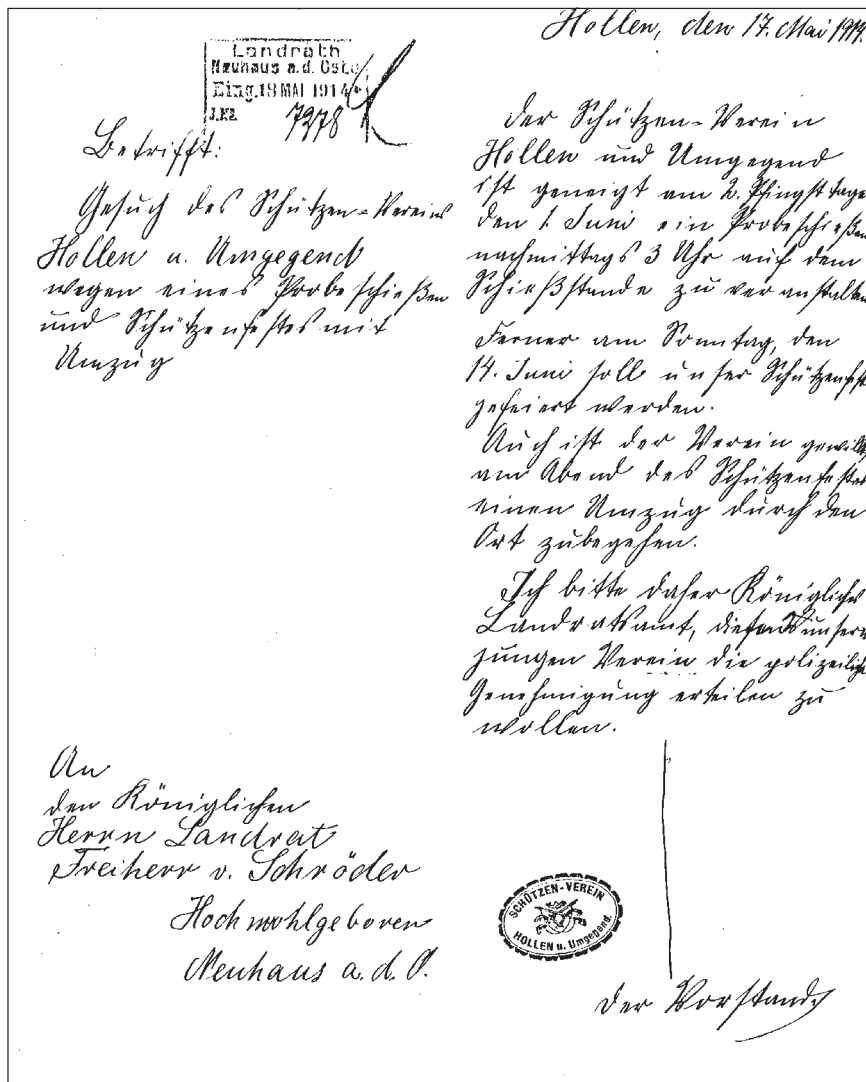 Hollen, den 17. Mai 1914.
Landrath
Neuhaus a.d. Oste
Eing. 18 MAI 1914
J.№ 7378
Betrifft:
Gesuch des Schützen-Vereins
Hollen u. Umgegend
wegen eines Probeschießen
und Schützenfestes mit
Umzug
Der Schützen-Verein
Hollen und Umgegend
ist geneigt am 2. Pfingsttage
den 1. Juni ein Probeschießen
nachmittags 3 Uhr auf dem
Schießstande zu veranstalten
Ferner am Sonntag, den
14. Juni soll unser Schützenfest
gefeiert werden.
Auch ist der Verein gewillt
am Abend des Schützenfestes
einen Umzug durch den
Ort zubegehen.
Ich bitte daher Königliches
Landratsamt, unserm
jungen Verein die polizeiliche
Genehmigung erteilen zu
wollen.
An
den Königlichen
Herrn Landrat
Freiherr v. Schröder
Hochwohlgeboren
Neuhaus a. d. O.
SCHÜTZEN-VEREIN
HOLLEN u. Umgegend.
Der Vorstand